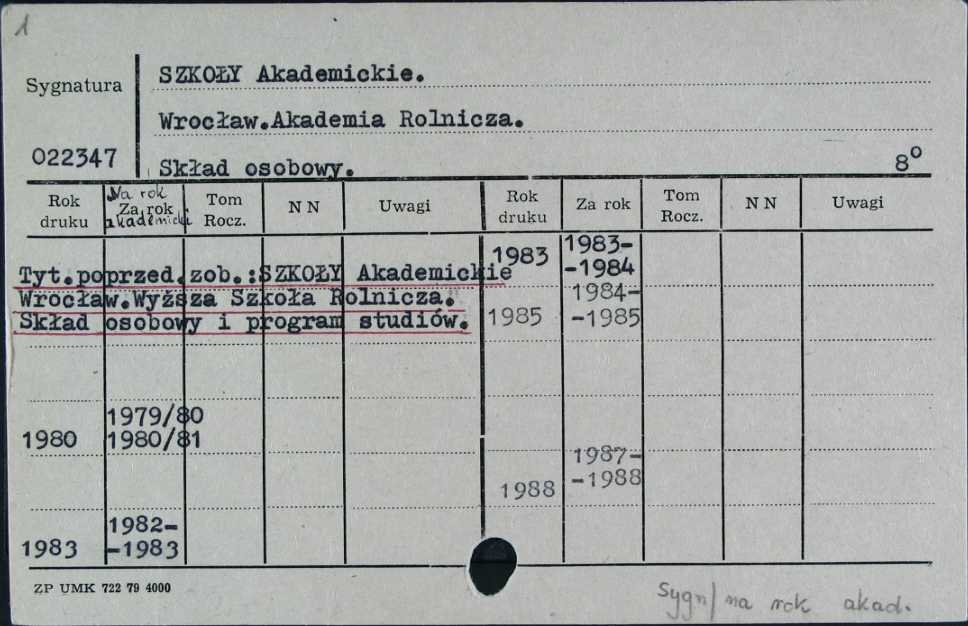 1
Sygnatura
SZKOŁY Akademickie.
Wrocław.Akademia Rolnicza.
022347
Skład osobowy.
8°
Rok druku
Na rok
Za rok
akademicki
Tom Rocz.
N N
Uwagi
Rok druku
Za rok
Tom Rocz.
N N
Uwagi
Tyt.poprzed.zob.:SZKOŁY Akademickie
Wrocław.Wyższa Szkoła Rolnicza.
Skład osobowy i program studiów.
1979/80
1980 1980/81
1982-
1983 -1983
1983 1983-
-1984
1984-
1985 -1985
1987-
1988 -1988
ZP UMK 722 79 4000
Sygn/ na rok akad.